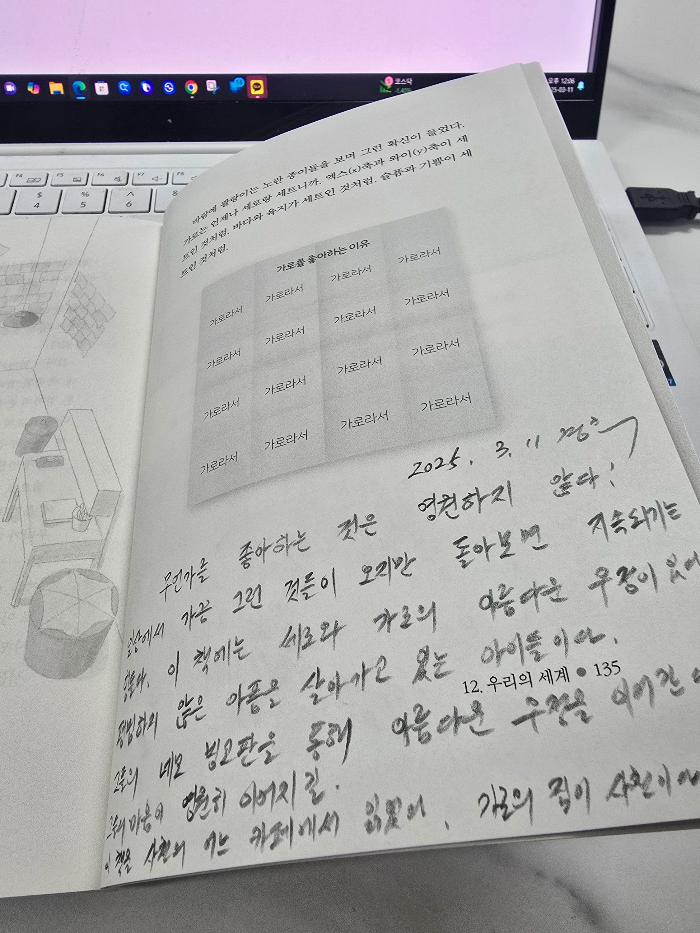 코스닥
-1.40%
오후 12:06
바람에 팔랑이는 노란 종이들을 보며 그런 확신이 들었다.
가로는 언제나 세로랑 세트니까. 엑스(x)축과 와이(y)축이 세
트인 것처럼. 바다와 육지가 세트인 것처럼. 슬픔과 기쁨이 세
트인 것처럼.
가로를 좋아하는 이유
가로라서 가로라서 가로라서 가로라서
가로라서 가로라서 가로라서 가로라서
가로라서 가로라서 가로라서 가로라서
가로라서 가로라서 가로라서 가로라서
2025. 3. 11
무언가를 좋아하는 것은 영원하지 않다!
일상에서 가끔 그런 것들이 오지만 돌아보면 지속되기는
힘들다. 이 책에는 세로와 가로의 아름다운 우정이 있다
평범하지 않은 아픔을 살아가고 있는 아이들이다.
12. 우리의 세계 ● 135
그들의 네모 빙고판을 통해 아름다운 우정을 이어간
마음이 영원히 이어지길.
이 책을 사천의 어느 카페에서 읽었어, 가로의 집이 사천이